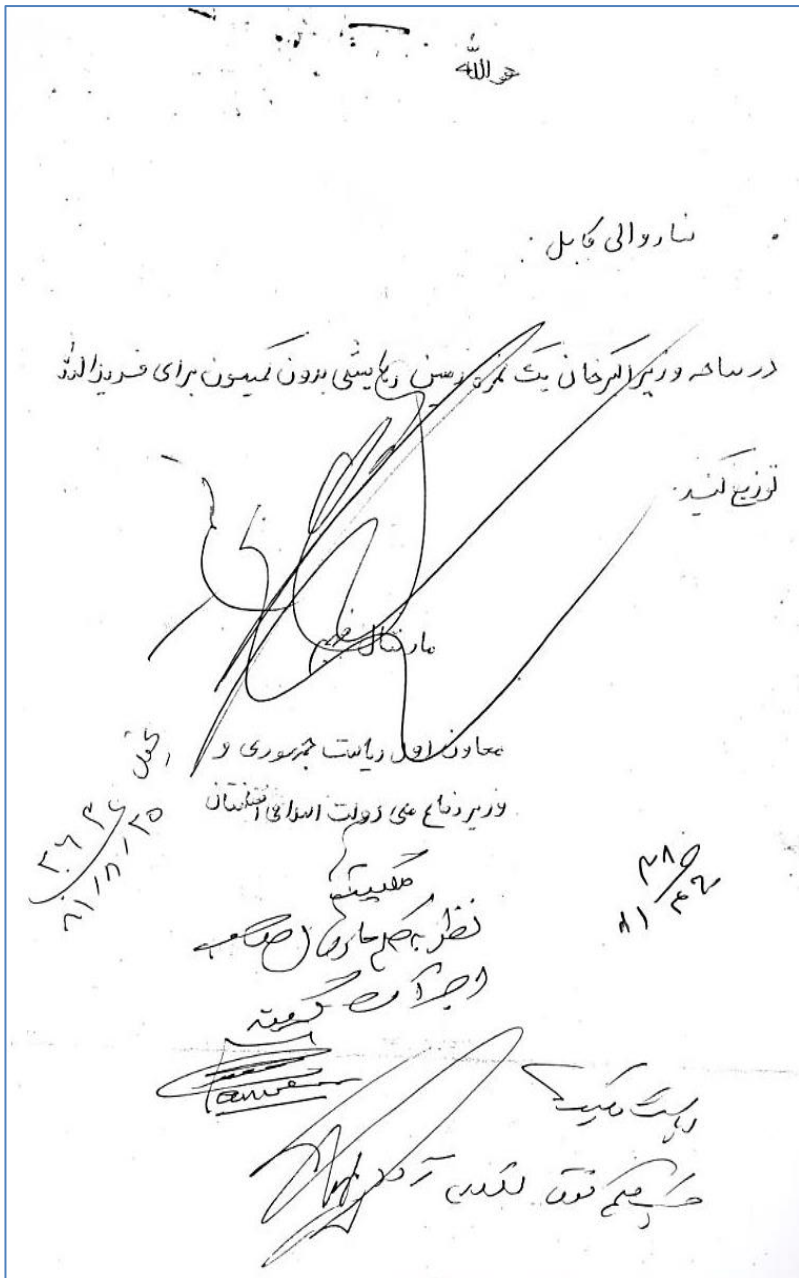 هوالله
ښاروالی کابل .
در ساحه وزیراکبرخان یک نمره زمین رهایشی بدون کمیسون برای فریدالله
توزیع کنید.
مارشال فهیم
معاون اول ریاست جمهوری و
وزیر دفاع ملی دولت اسلامی افغانستان
۸۱/۸/۲۵
ملکیتها
نظر به حکم مارشال صاحب
اجراآت گرفته
ریاست ملکیت
حسب حکم فوق